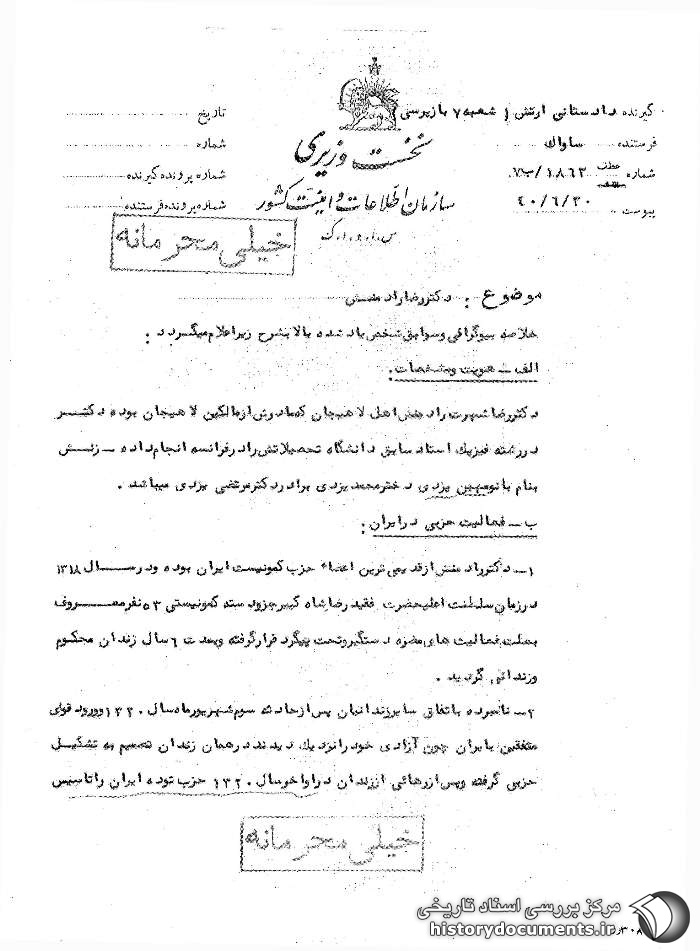 گیرنده دادستانی ارتش (شعبه ۷ بازپرسی)
فرستنده ساواک
شماره ۱۸۶۲/
پیوست ۴۰/۶/۲۰
نخست وزیری
سازمان اطلاعات و امنیت کشور
س.ا.و.ا.ک
تاریخ
شماره
شماره پرونده گیرنده
شماره پرونده فرستنده
خیلی محرمانه
موضوع : دکتر رضا رادمنش
خلاصه بیوگرافی و سوابق شخص یاد شده بالا بشرح زیر اعلام میگردد :
الف - هویت و مشخصات :
دکتر رضا شهرت رادمنش اهل لاهیجان که مادرش از مالکین لاهیجان بوده دکتر
در رشته فیزیک استاد سابق دانشگاه تحصیلاتش را در فرانسه انجام داده - زنش
بنام بانو مهین یزدی دختر محمد یزدی برادر دکتر مرتضی یزدی میباشد .
ب - فعالیت حزبی در ایران :
۱- دکتر رادمنش از قدیمی ترین اعضاء حزب کمونیست ایران بوده و در سال ۱۳۱۸
در زمان سلطنت اعلیحضرت فقید رضا شاه کبیر جزو دسته کمونیستی ۵۳ نفر معروف
بعلت فعالیت های مضره دستگیر و تحت پیگرد قرار گرفته و بمدت ۶ سال زندان محکوم
و زندانی گردید .
۲- نامبرده باتفاق سایر زندانیان پس از حادثه سوم شهریور ماه سال ۱۳۲۰ و ورود قوای
متفقین بایران چون آزادی خود را نزدیک دیدند در همان زندان تصمیم به تشکیل
حزبی گرفته و پس از رهائی از زندان در اواخر سال ۱۳۲۰ حزب توده ایران را تاسیس
خیلی محرمانه
مرکز بررسی اسناد تاریخی
historydocuments.ir